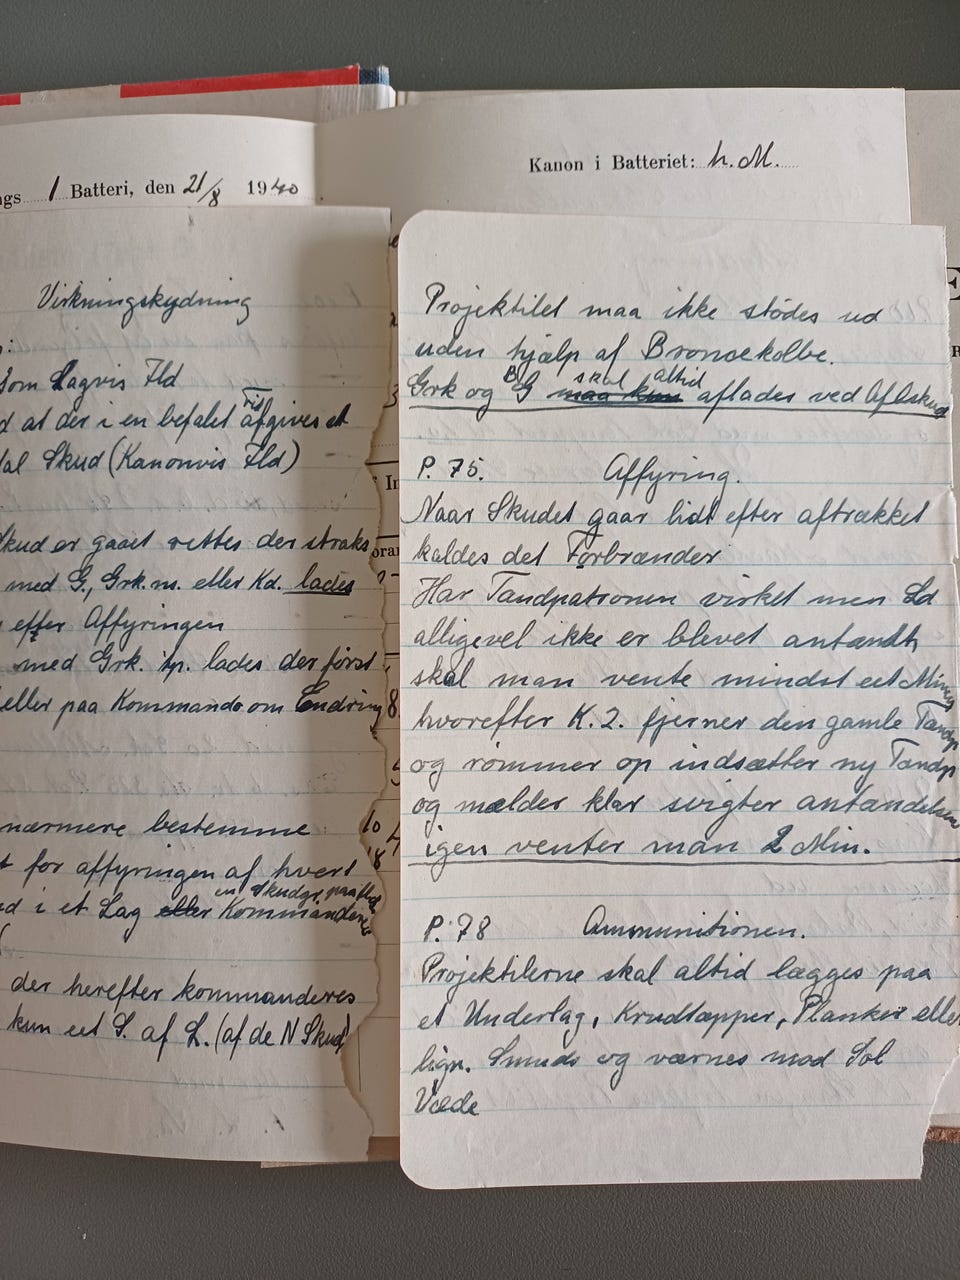 1 Batteri, den 21/8 1940
Kanon i Batteriet: h. M.
Virkningskydning
Som Lagvis Ild
at der i en befalet Tid afgives et
Skud (Kanonvis Ild)
Skud er gaaet rettes der straks
med G., Grk. m. eller Kd. lades
efter Affyringen
med Grk. tp. lades der først
eller paa Kommando om Endring
nærmere bestemme
for affyringen af hvert
i et Lag eller Kommanderes
der herefter kommanderes
kun eet S. af L. (af de N Skud)
Projektilet maa ikke stødes ud
uden hjælp af Broncekolbe.
Grk og BG maa kun skal altid aflades ved Afskud
P. 75. Affyring.
Naar Skudet gaar lidt efter aftrækket
kaldes det Forbrænder
Har Tændpatronen virket men Ld
alligevel ikke er blevet antændt,
skal man vente mindst eet Minut
hvorefter K. 2. fjerner den gamle Tændp
og rømmer op indsætter ny Tændp
og melder klar svigter antændelsen
igen venter man 2 Min.
P. 78 Ammunitionen.
Projektilerne skal altid lægges paa
et Underlag, Krudtæpper, Planker eller
lign. Smuds og værnes mod Sol
Væde